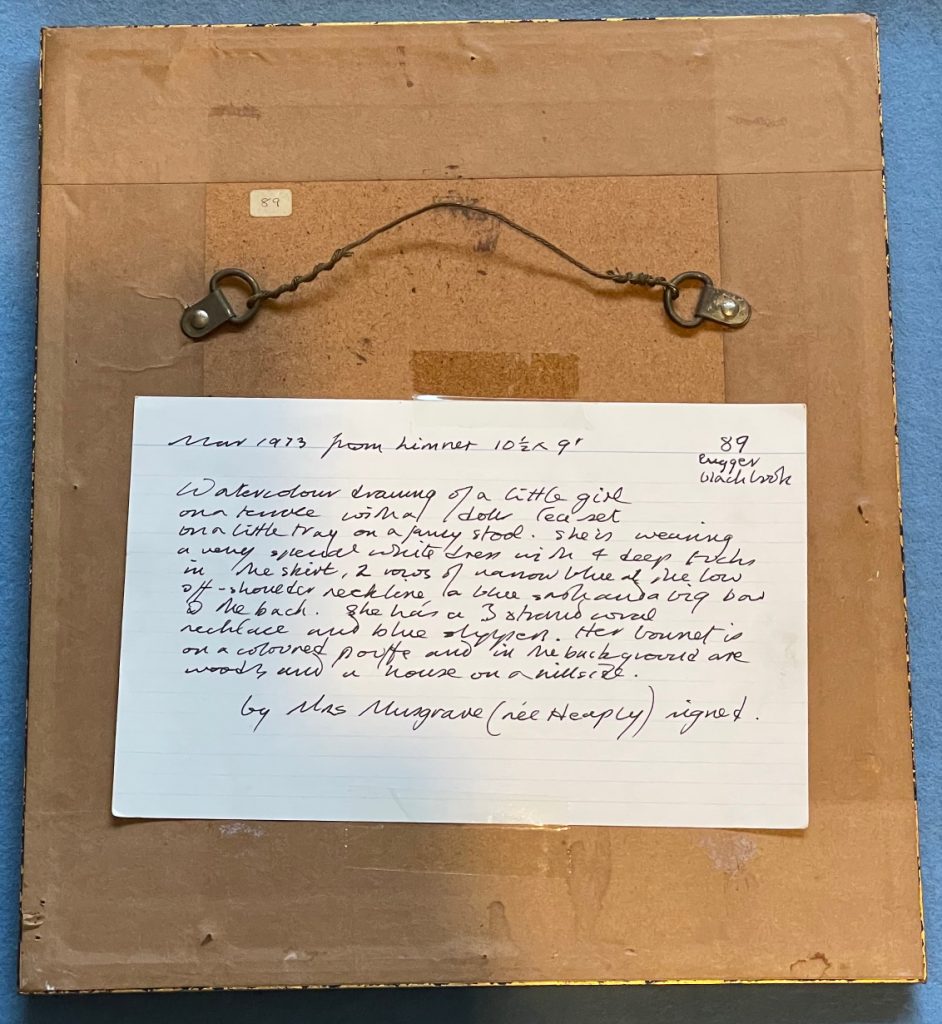 89
Mar 1973 from Limner 10½ x 9"
89
bigger
black book
Watercolour drawing of a little girl
on a terrace with a dolls Tea set
on a little tray on a fancy stool. She is wearing
a very special white dress with 4 deep tucks
in the skirt, 2 rows of narrow blue at the low
off-shoulder neckline a blue sash and a big bow
at the back. She has a 3 strand coral
necklace and blue slippers. Her bonnet is
on a coloured pouffe and in the background are
woods and a house on a hillside.
by Mrs Musgrave (née Heaply) signed.